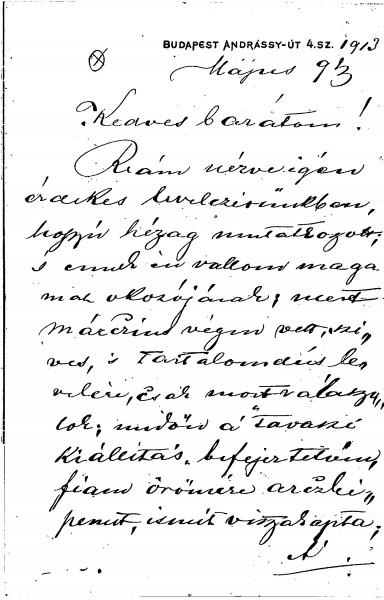 BUDAPEST ANDRÁSSY-ÚT 4.SZ. 1913
Május 9
Kedves barátom!
Reám nézve igen
érdekes levelezésünkben,
hosszú hézag mutatkozott,
s ennek én vallom maga
mat okozójának; mert
Március végén vett, szi„
ves, s tartalomdús le
velére, csak most válaszo„
lok; midőn a "Tavaszi
Kiállitás„ befejeztetvén,
fiam örömére arczké„
pemet, ismét visszakapta;